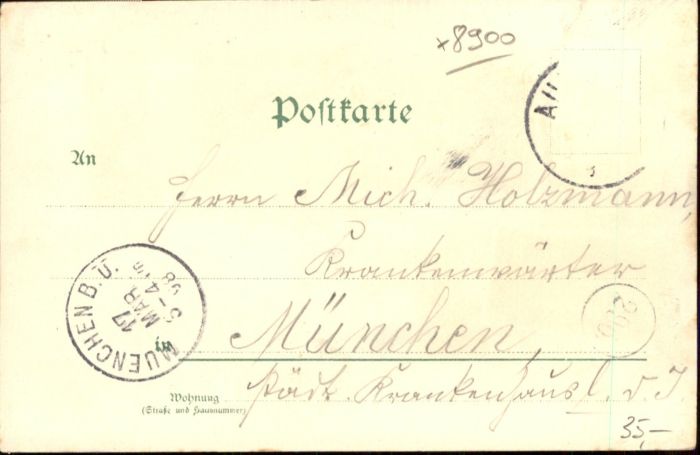 x8900
Postkarte
All
An
Herrn Mich. Holzmann,
Krankenwärter
MUENCHEN B.Ü.
17
MAR
98
München,
Städt. Krankenhaus l. d. I.
Wohnung
(Straße und Hausnummer)
35,—